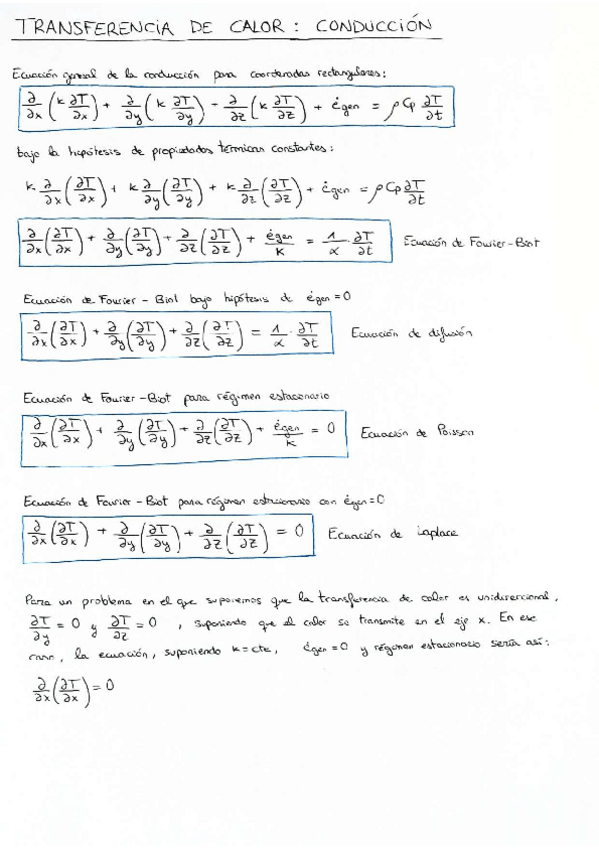 TRANSFERENCIA DE CALOR: CONDUCCIÓN
Ecuación general de la conducción para coordenadas rectangulares:
∂/∂x (k ∂T/∂x) + ∂/∂y (k ∂T/∂y) - ∂/∂z (k ∂T/∂z) + ėgen = ρ Cp ∂T/∂t
bajo la hipótesis de propiedades térmicas constantes:
k ∂/∂x (∂T/∂x) + k ∂/∂y (∂T/∂y) + k ∂/∂z (∂T/∂z) + ėgen = ρ Cp ∂T/∂t
∂/∂x (∂T/∂x) + ∂/∂y (∂T/∂y) + ∂/∂z (∂T/∂z) + ėgen/k = 1/α · ∂T/∂t Ecuación de Fourier-Biot
Ecuación de Fourier - Biot bajo hipótesis de ėgen = 0
∂/∂x (∂T/∂x) + ∂/∂y (∂T/∂y) + ∂/∂z (∂T/∂z) = 1/α · ∂T/∂t Ecuación de difusión
Ecuación de Fourier - Biot para régimen estacionario
∂/∂x (∂T/∂x) + ∂/∂y (∂T/∂y) + ∂/∂z (∂T/∂z) + ėgen/k = 0 Ecuación de Poisson
Ecuación de Fourier - Biot para régimen estacionario con ėgen = 0
∂/∂x (∂T/∂x) + ∂/∂y (∂T/∂y) + ∂/∂z (∂T/∂z) = 0 Ecuación de Laplace
Para un problema en el que suponemos que la transferencia de calor es unidireccional,
∂T/∂y = 0 y ∂T/∂z = 0 , suponiendo que el calor se transmite en el eje x. En ese
caso, la ecuación, suponiendo k = cte, ėgen = 0 y régimen estacionario sería así:
∂/∂x (∂T/∂x) = 0